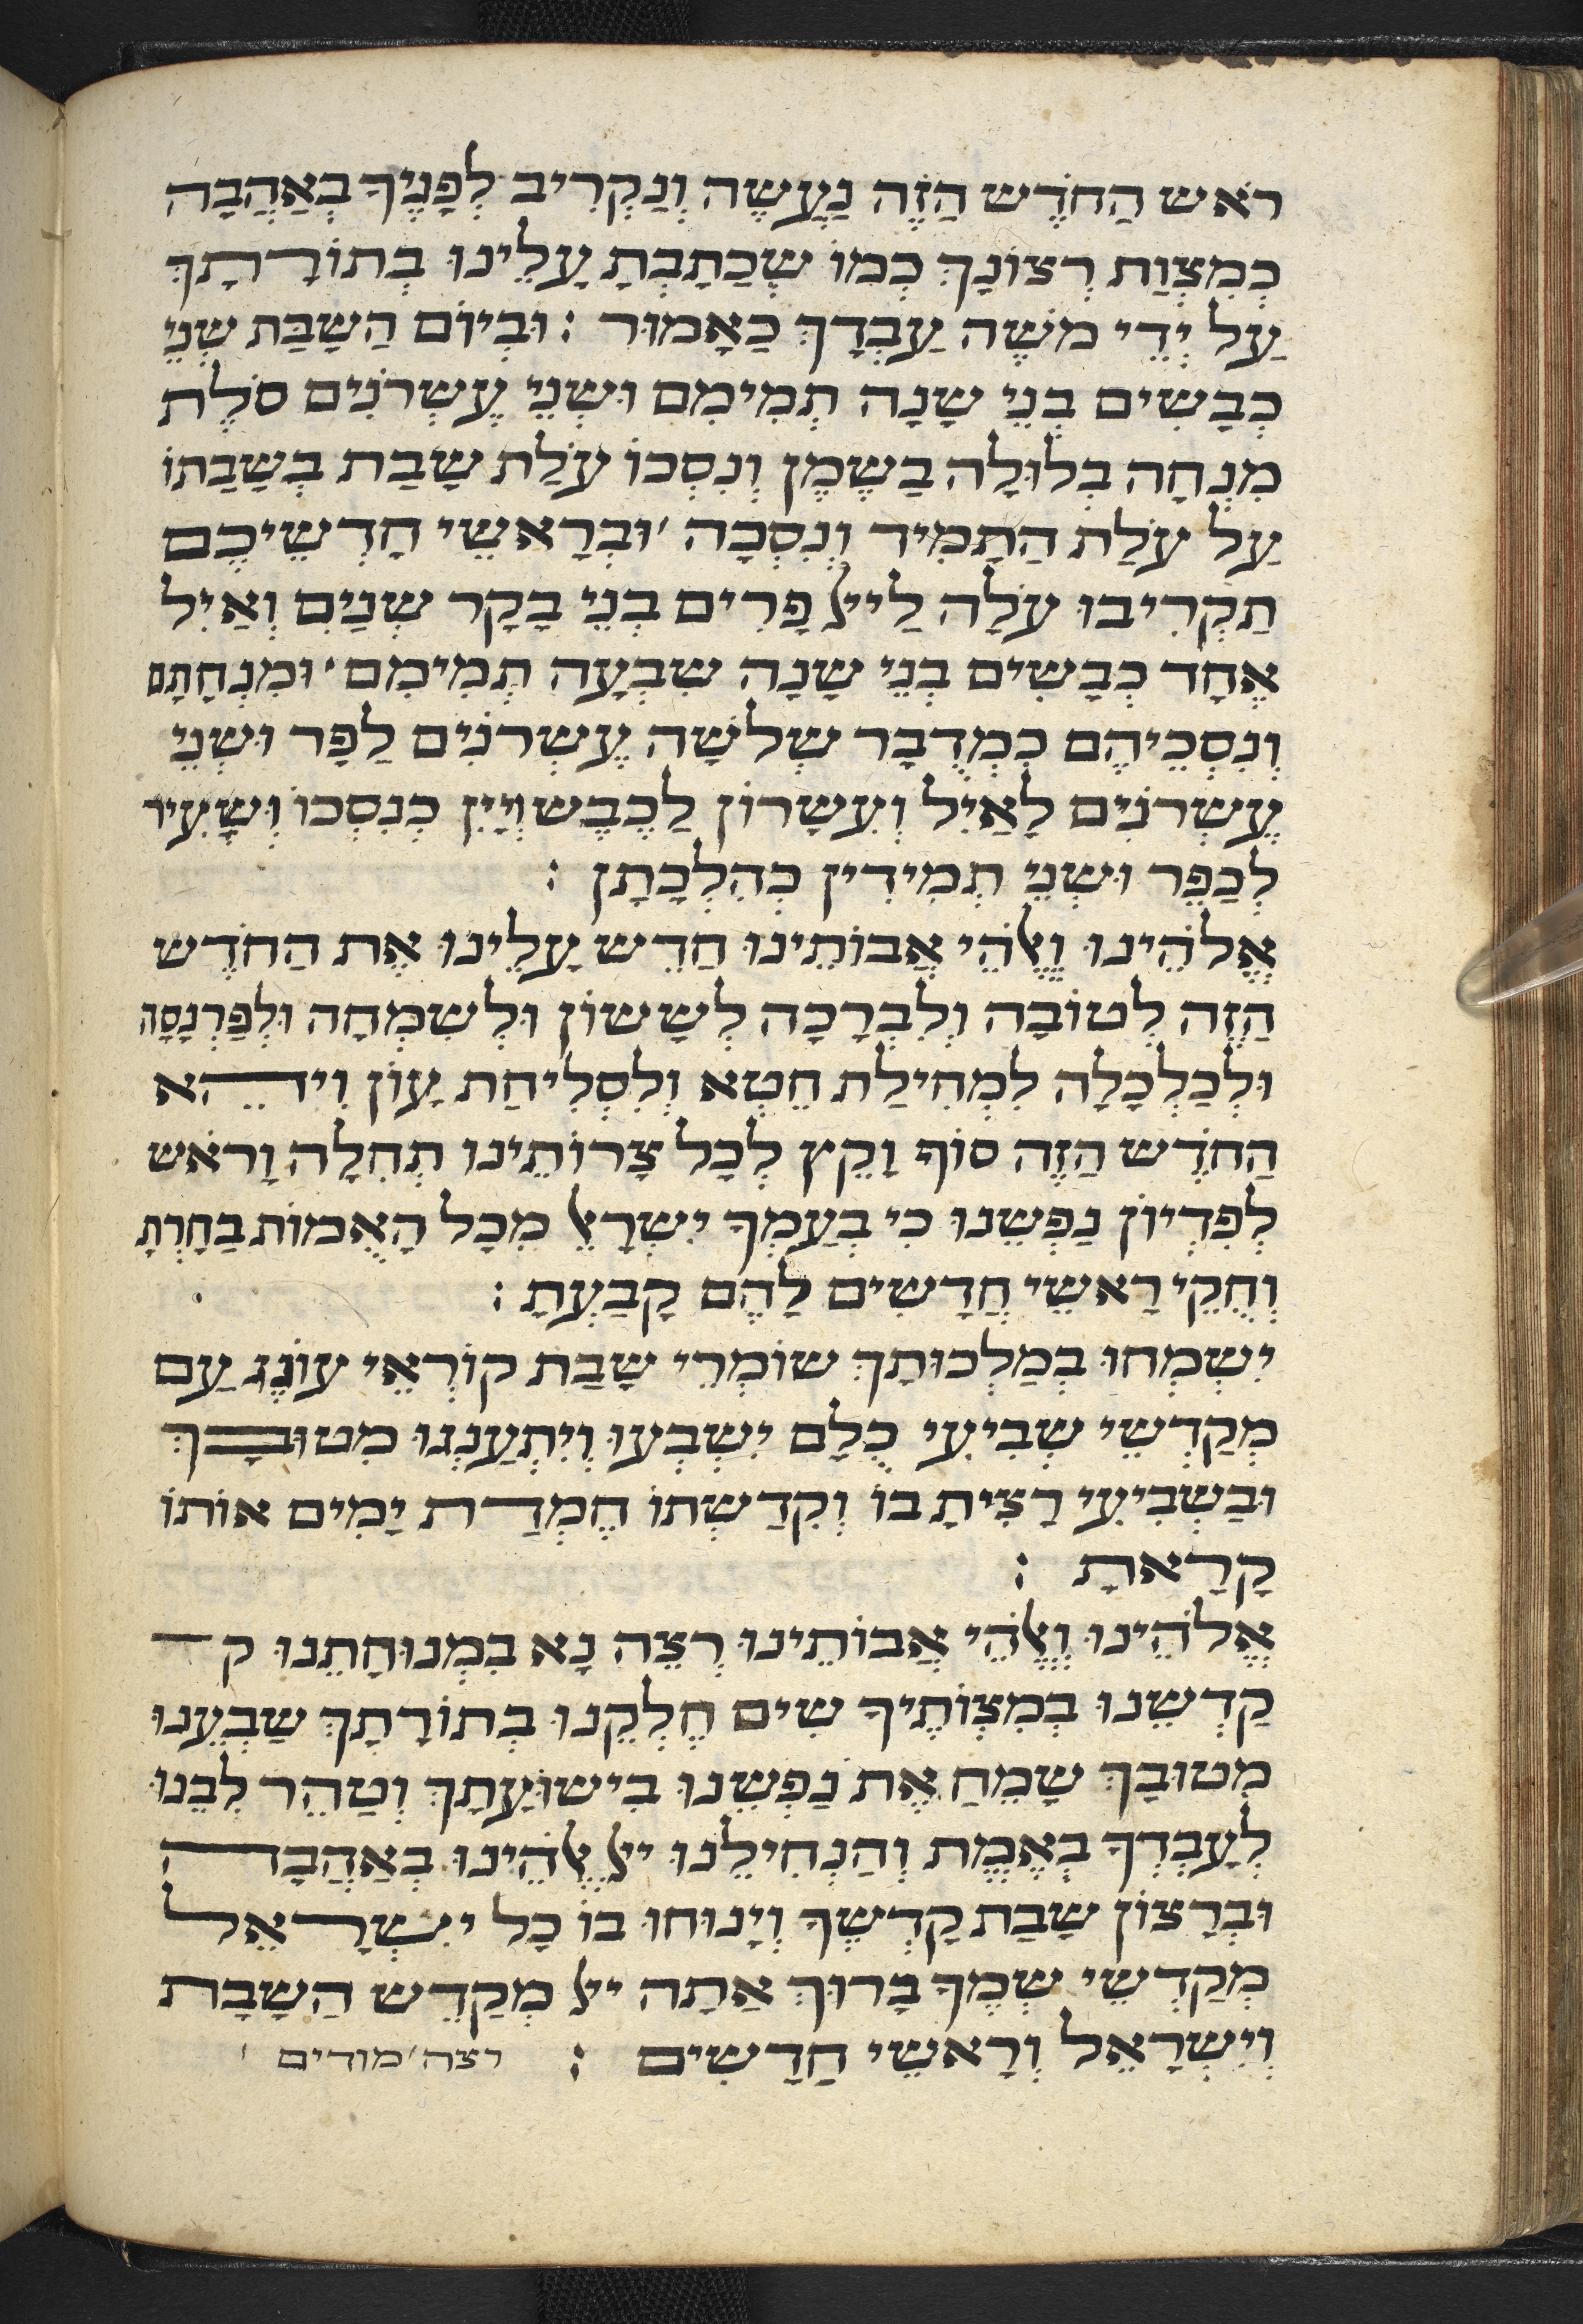 רֹאשׁ הַחֹדֶשׁ הַזֶה נַעֲשֶה וְנַקְרִיב לְפָנֶיךָ בְאַהֲבָה
כְמִצְוַת רְצוֹנָךְ כְמוֹ שֶכַתָבְתָ עָלֵינוּ בְתוֹרָתָךְ
עַל יְדֵי משֶׁה עַבְדָךְ כַאָמוּר : וּבְיוֹם הַשַבָת שְנֵי
כְבָשִים בְנֵי שָנָה תְמִימִם וּשְנֵי עֶשְרֹנִים סֹלֶת
מִנְחָה בְלוּלָה בַשֶמֶן וְנִסְכוֹ עֹלַת שַבָת בְשַבַתוֹ
עַל עֹלַת הַתָמִיד וְנִסְכָה ׳ וּבְרָאשֵי חָדְשֵיכֶם
תַקְרִיבוּ עֹלָה לַייָ פָרִים בְנֵי בָקָר שְנַיִם וְאַיִל
אֶחָד כְבָשִים בְנֵי שָנָה שִבְעָה תְמִימִם ׳ וּמִנְחָתָם
וְנִסְכֵיהֶם כִמְדֻבָר שְלשָה עֶשְרֹנִים לַפָר וּשְנֵי
עֶשְרֹנִים לָאַיִל וְעִשָרוֹן לַכֶבֶש וְיַיִן כְנִסְכוֹ וְשָעִיר
לְכַפֵר וּשְנֵי תְמִידִין כְהִלְכָתָן :
אֱלֹהֵינוּ וֶﭏֱהֵי אֲבוֹתֵינוּ חַדֵש עָלֵינוּ אֶת הַחֹדֶש
הַזֶה לְטוֹבָה וְלִבְרָכָה לְשָשוֹן וּלְשִמְחָה וּלְפַרְנָסָה
וּלְכַלְכָלָה לִמְחִילַת חֵטְא וְלִסְלִיחַת עָוֹן וִיהֵא
הַחֹדֶש הַזֶה סוֹף וָקֵץ לְכָל צָרוֹתֵינוּ תְחִלָה וָרֹאש
לְפִדְיוֹן נַפְשֵנוּ כִי בְעַמְךָ יִשְרָﭏֵ מִכָל הָאֻמוֹת בָחַרְתָ
וְחֻקֵי רָאשֵי חֳדָשִים לָהֶם קָבַעְתָ :
יִשְמְחוּ בְמַלְכוּתָךְ שוֹמְרֵי שַבָת קוֹרְאֵי עוֹנֶג עַם
מְקַדְשֵי שְבִיעִי כֻלָם יִשְבְעוּ וְיִתְעַנְגוּ מִטוּבָךְ
וּבַשְבִיעִי רָצִיתָ בוֹ וְקִדַשְתוֹ חֶמְדַת יָמִים אוֹתוֹ
קָרָאתָ :
אֱלֹהֵינוּ וֶﭏֱהֵי אֲבוֹתֵינוּ רְצֵה נָא בִמְנוּחָתֵנוּ קד
קַדְשֵנוּ בְמִצְוֹתֶיךָ שִים חֶלְקֵנוּ בְתוֹרָתָךְ שַבְעֵנוּ
מִטוּבָךְ שַמֵחַ אֶת נַפְשֵנוּ בִישוּעָתָךְ וְטַהֵר לִבֵנוּ
לְעָבְדְךָ בְאֱמֶת וְהַנְחִילֵנוּ ייָ ﭏֱהֵינוּ בְאַהֲבָה
וּבְרָצוֹן שַבַת קָדְשֶךָ וְיָנוּחוּ בוֹ כָל יִשְרָאֵל
מְקַדְשֵי שְמֶךָ בָרוּךְ אַתָה ייָ מְקַדֵש הַשַבָת
וְיִשְרָאֵל וְרָאשֵי חֳדָשִים : רצה ׳ מודים ׳